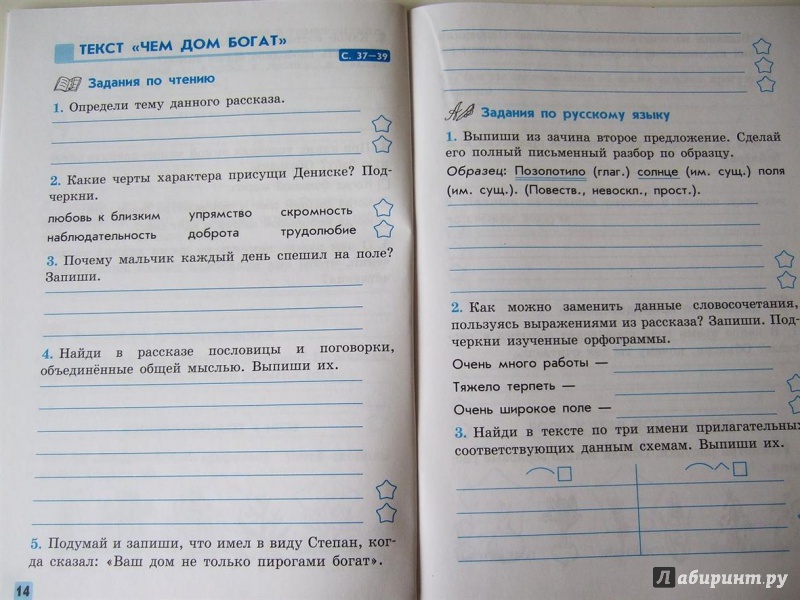 ТЕКСТ «ЧЕМ ДОМ БОГАТ»
С. 37—39
Задания по чтению
1. Определи тему данного рассказа.
2. Какие черты характера присущи Дениске? Под-
черкни.
любовь к близким упрямство скромность
наблюдательность доброта трудолюбие
3. Почему мальчик каждый день спешил на поле?
Запиши.
4. Найди в рассказе пословицы и поговорки,
объединённые общей мыслью. Выпиши их.
5. Подумай и запиши, что имел в виду Степан, ког-
да сказал: «Ваш дом не только пирогами богат».
14
Задания по русскому языку
1. Выпиши из зачина второе предложение. Сделай
его полный письменный разбор по образцу.
Образец: Позолотило (глаг.) солнце (им. сущ.) поля
(им. сущ.). (Повеств., невоскл., прост.).
2. Как можно заменить данные словосочетания,
пользуясь выражениями из рассказа? Запиши. Под-
черкни изученные орфограммы.
Очень много работы —
Тяжело терпеть —
Очень широкое поле —
3. Найди в тексте по три имени прилагательных
соответствующих данным схемам. Выпиши их.
Лабиринт.ру